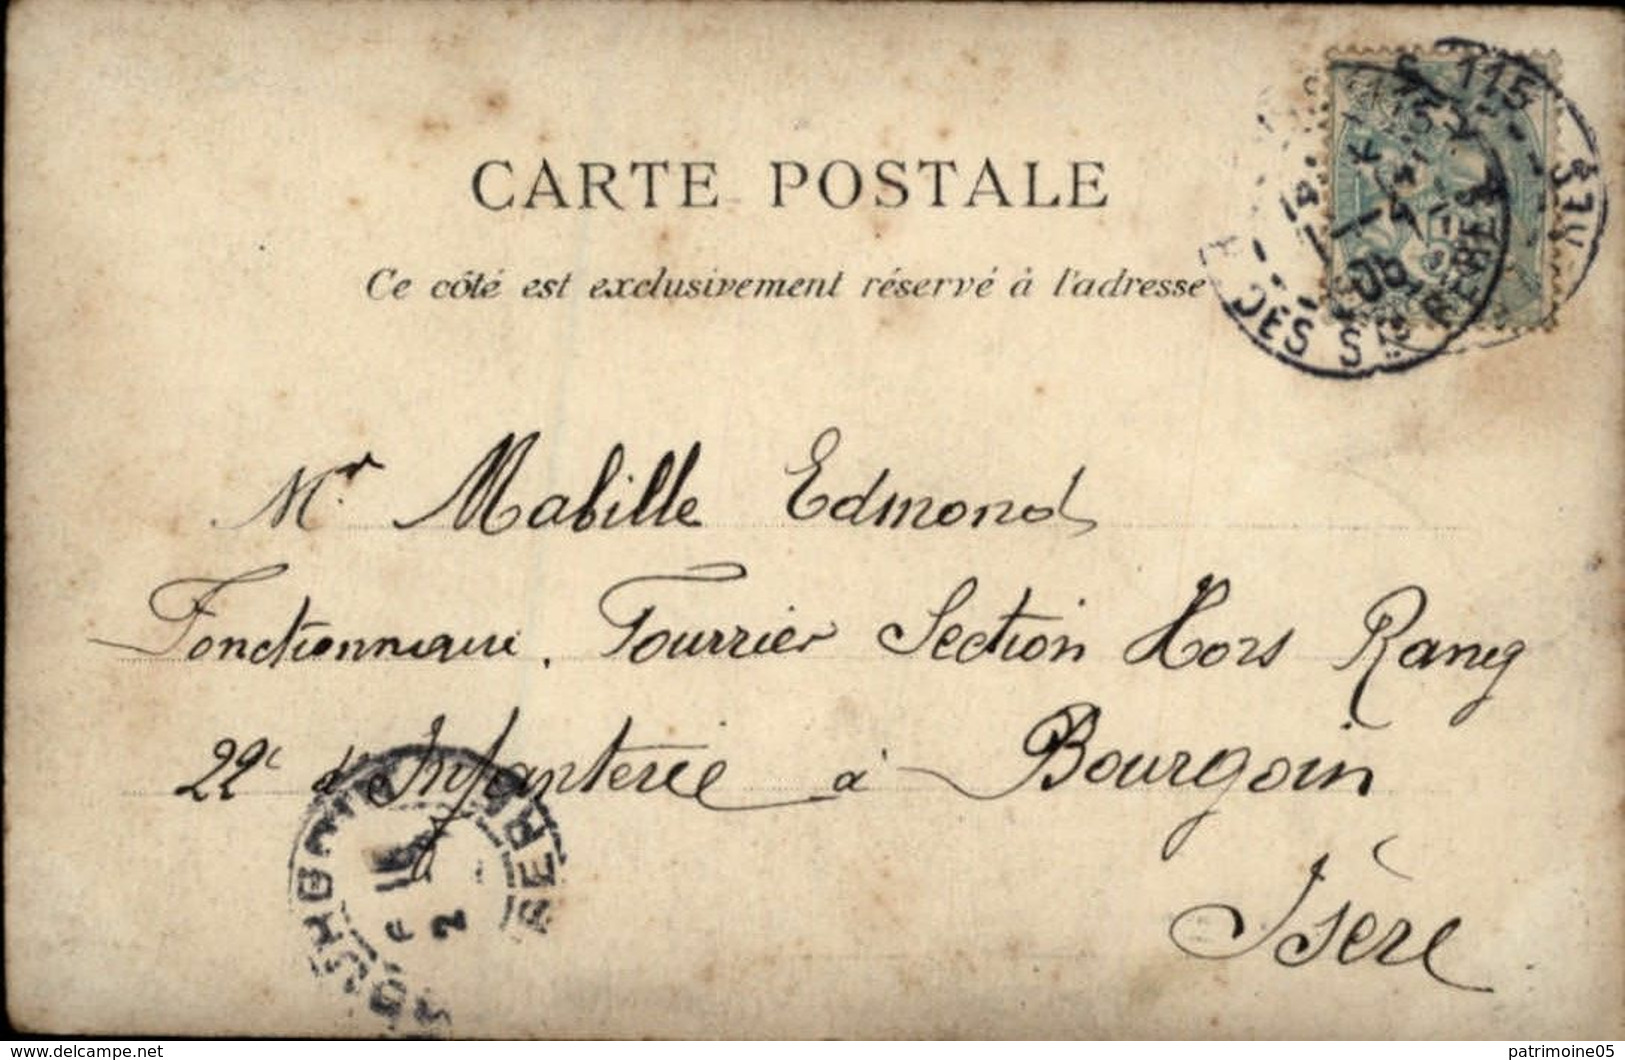 CARTE POSTALE
Ce côté est exclusivement réservé à l'adresse
115
DES
05
Mr. Mabille Edmond
Fonctionnaire. Fourrier Section Hors Rang
22e d'Infanterie à Bourgoin
Isère
BOURGOIN
2
delcampe.net
patrimoine05